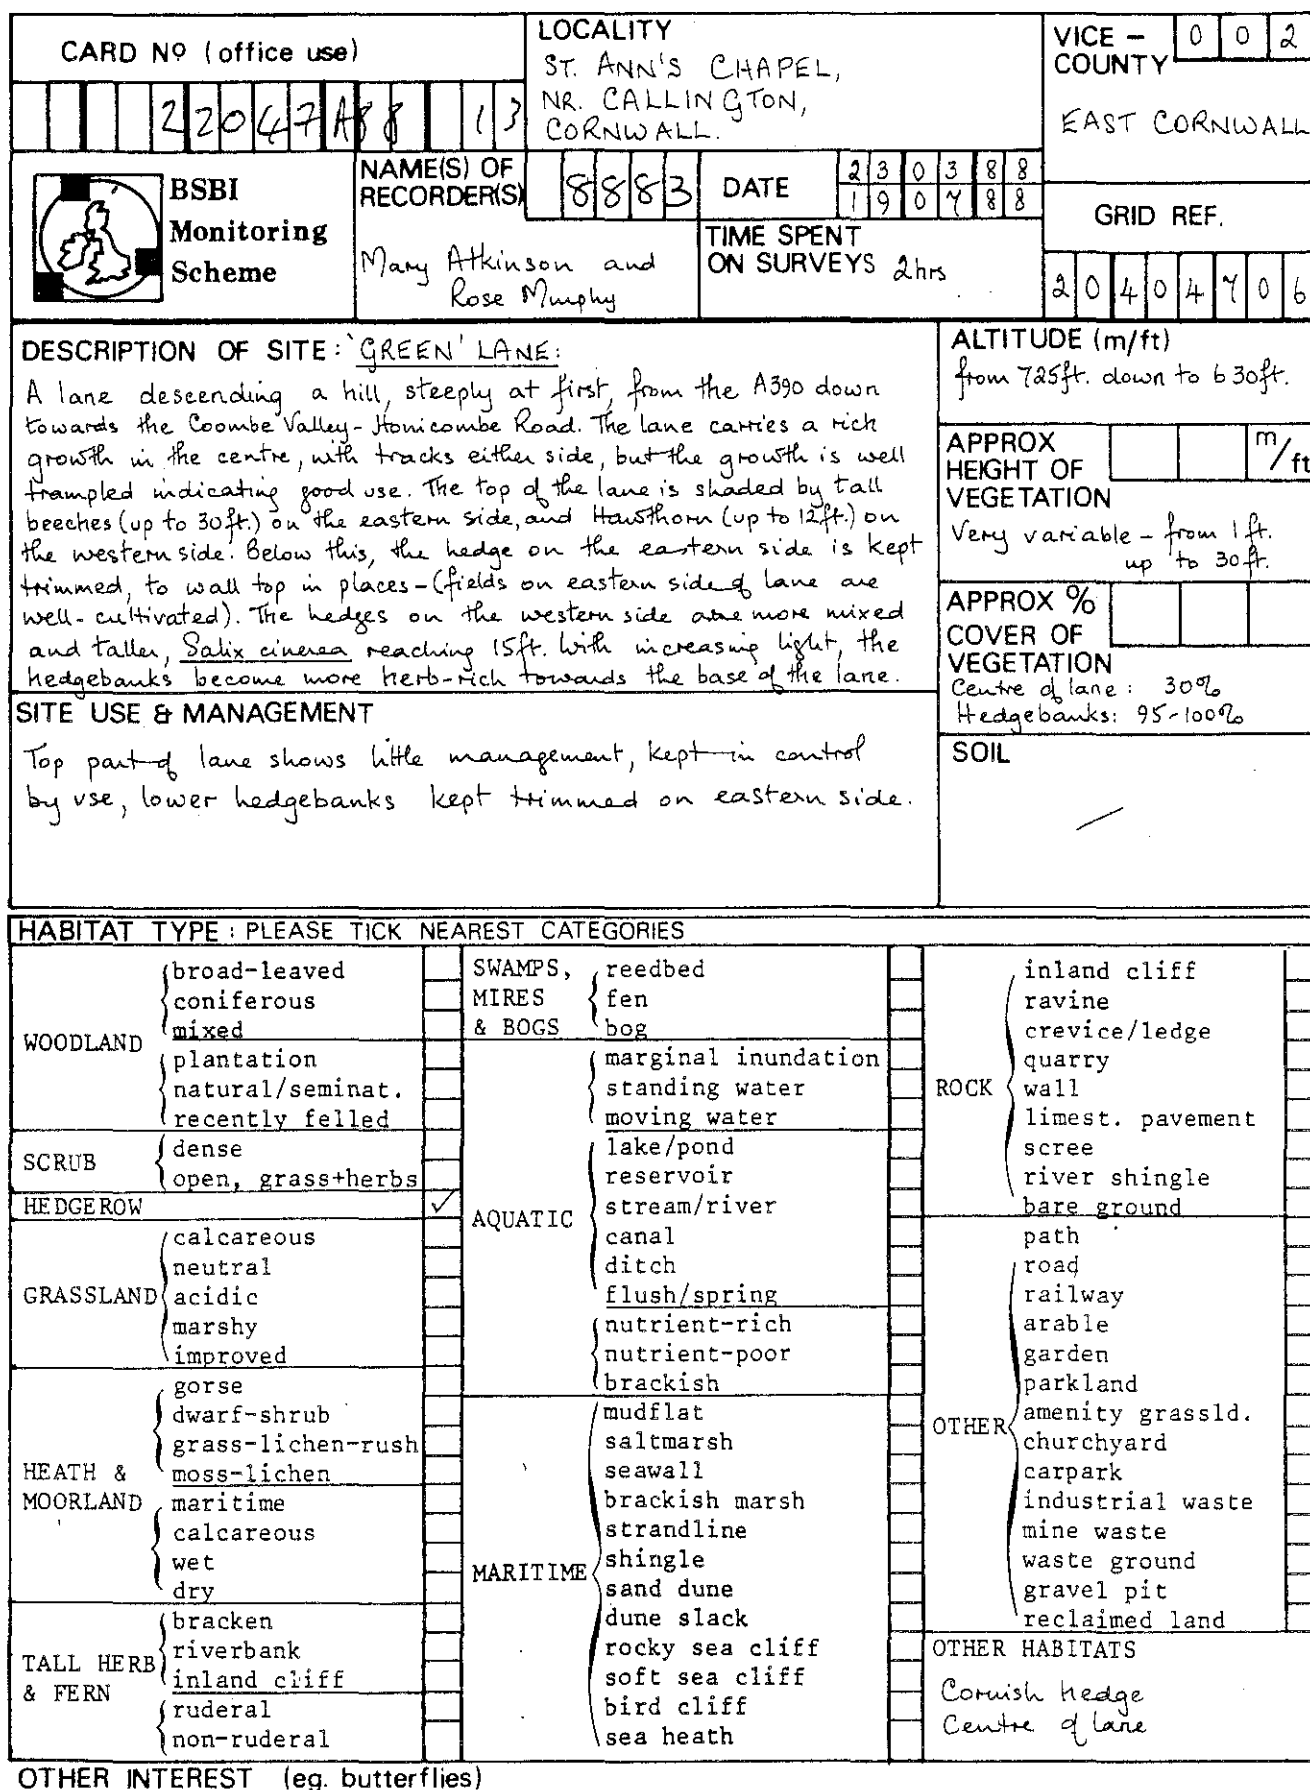 CARD Nº (office use)
22047A88 13
LOCALITY
ST. ANN'S CHAPEL,
NR. CALLINGTON,
CORNWALL.
VICE - COUNTY
002
EAST CORNWALL
BSBI
Monitoring
Scheme
NAME(S) OF
RECORDER(S)
8883
Mary Atkinson and
Rose Murphy
DATE
230388
190788
TIME SPENT
ON SURVEYS 2hrs
GRID REF.
20404706
DESCRIPTION OF SITE: 'GREEN' LANE:
A lane descending a hill, steeply at first, from the A390 down
towards the Coombe Valley - Honicombe Road. The lane carries a rich
growth in the centre, with tracks either side, but the growth is well
trampled indicating good use. The top of the lane is shaded by tall
beeches (up to 30ft.) on the eastern side, and Hawthorn (up to 12ft.) on
the western side. Below this, the hedge on the eastern side is kept
trimmed, to wall top in places - (fields on eastern side of lane are
well-cultivated). The hedges on the western side are more mixed
and taller, Salix cinerea reaching 15ft. With increasing light, the
hedgebanks become more herb-rich towards the base of the lane.
ALTITUDE (m/ft)
from 725ft. down to 630ft.
APPROX
HEIGHT OF
VEGETATION
m/ft
Very variable - from 1 ft.
up to 30 ft.
APPROX %
COVER OF
VEGETATION
Centre of lane: 30%
Hedgebanks: 95-100%
SITE USE & MANAGEMENT
Top part of lane shows little management, kept in control
by use, lower hedgebanks kept trimmed on eastern side.
SOIL
HABITAT TYPE: PLEASE TICK NEAREST CATEGORIES
WOODLAND
broad-leaved
coniferous
mixed
plantation
natural/seminat.
recently felled
SCRUB
dense
open, grass+herbs
HEDGEROW ✓
GRASSLAND
calcareous
neutral
acidic
marshy
improved
HEATH &
MOORLAND
gorse
dwarf-shrub
grass-lichen-rush
moss-lichen
maritime
calcareous
wet
dry
TALL HERB
& FERN
bracken
riverbank
inland cliff
ruderal
non-ruderal
SWAMPS,
MIRES
& BOGS
reedbed
fen
bog
AQUATIC
marginal inundation
standing water
moving water
lake/pond
reservoir
stream/river
canal
ditch
flush/spring
nutrient-rich
nutrient-poor
brackish
MARITIME
mudflat
saltmarsh
seawall
brackish marsh
strandline
shingle
sand dune
dune slack
rocky sea cliff
soft sea cliff
bird cliff
sea heath
ROCK
inland cliff
ravine
crevice/ledge
quarry
wall
limest. pavement
scree
river shingle
bare ground
OTHER
path
road
railway
arable
garden
parkland
amenity grassld.
churchyard
carpark
industrial waste
mine waste
waste ground
gravel pit
reclaimed land
OTHER HABITATS
Cornish hedge
Centre of lane
OTHER INTEREST (eg. butterflies)